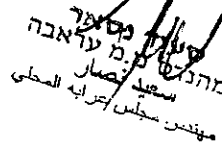 סעיד נסאר
מהנדס מ.מ עראבה
سعيد نصار
مهندس مجلس عرابه المحلي